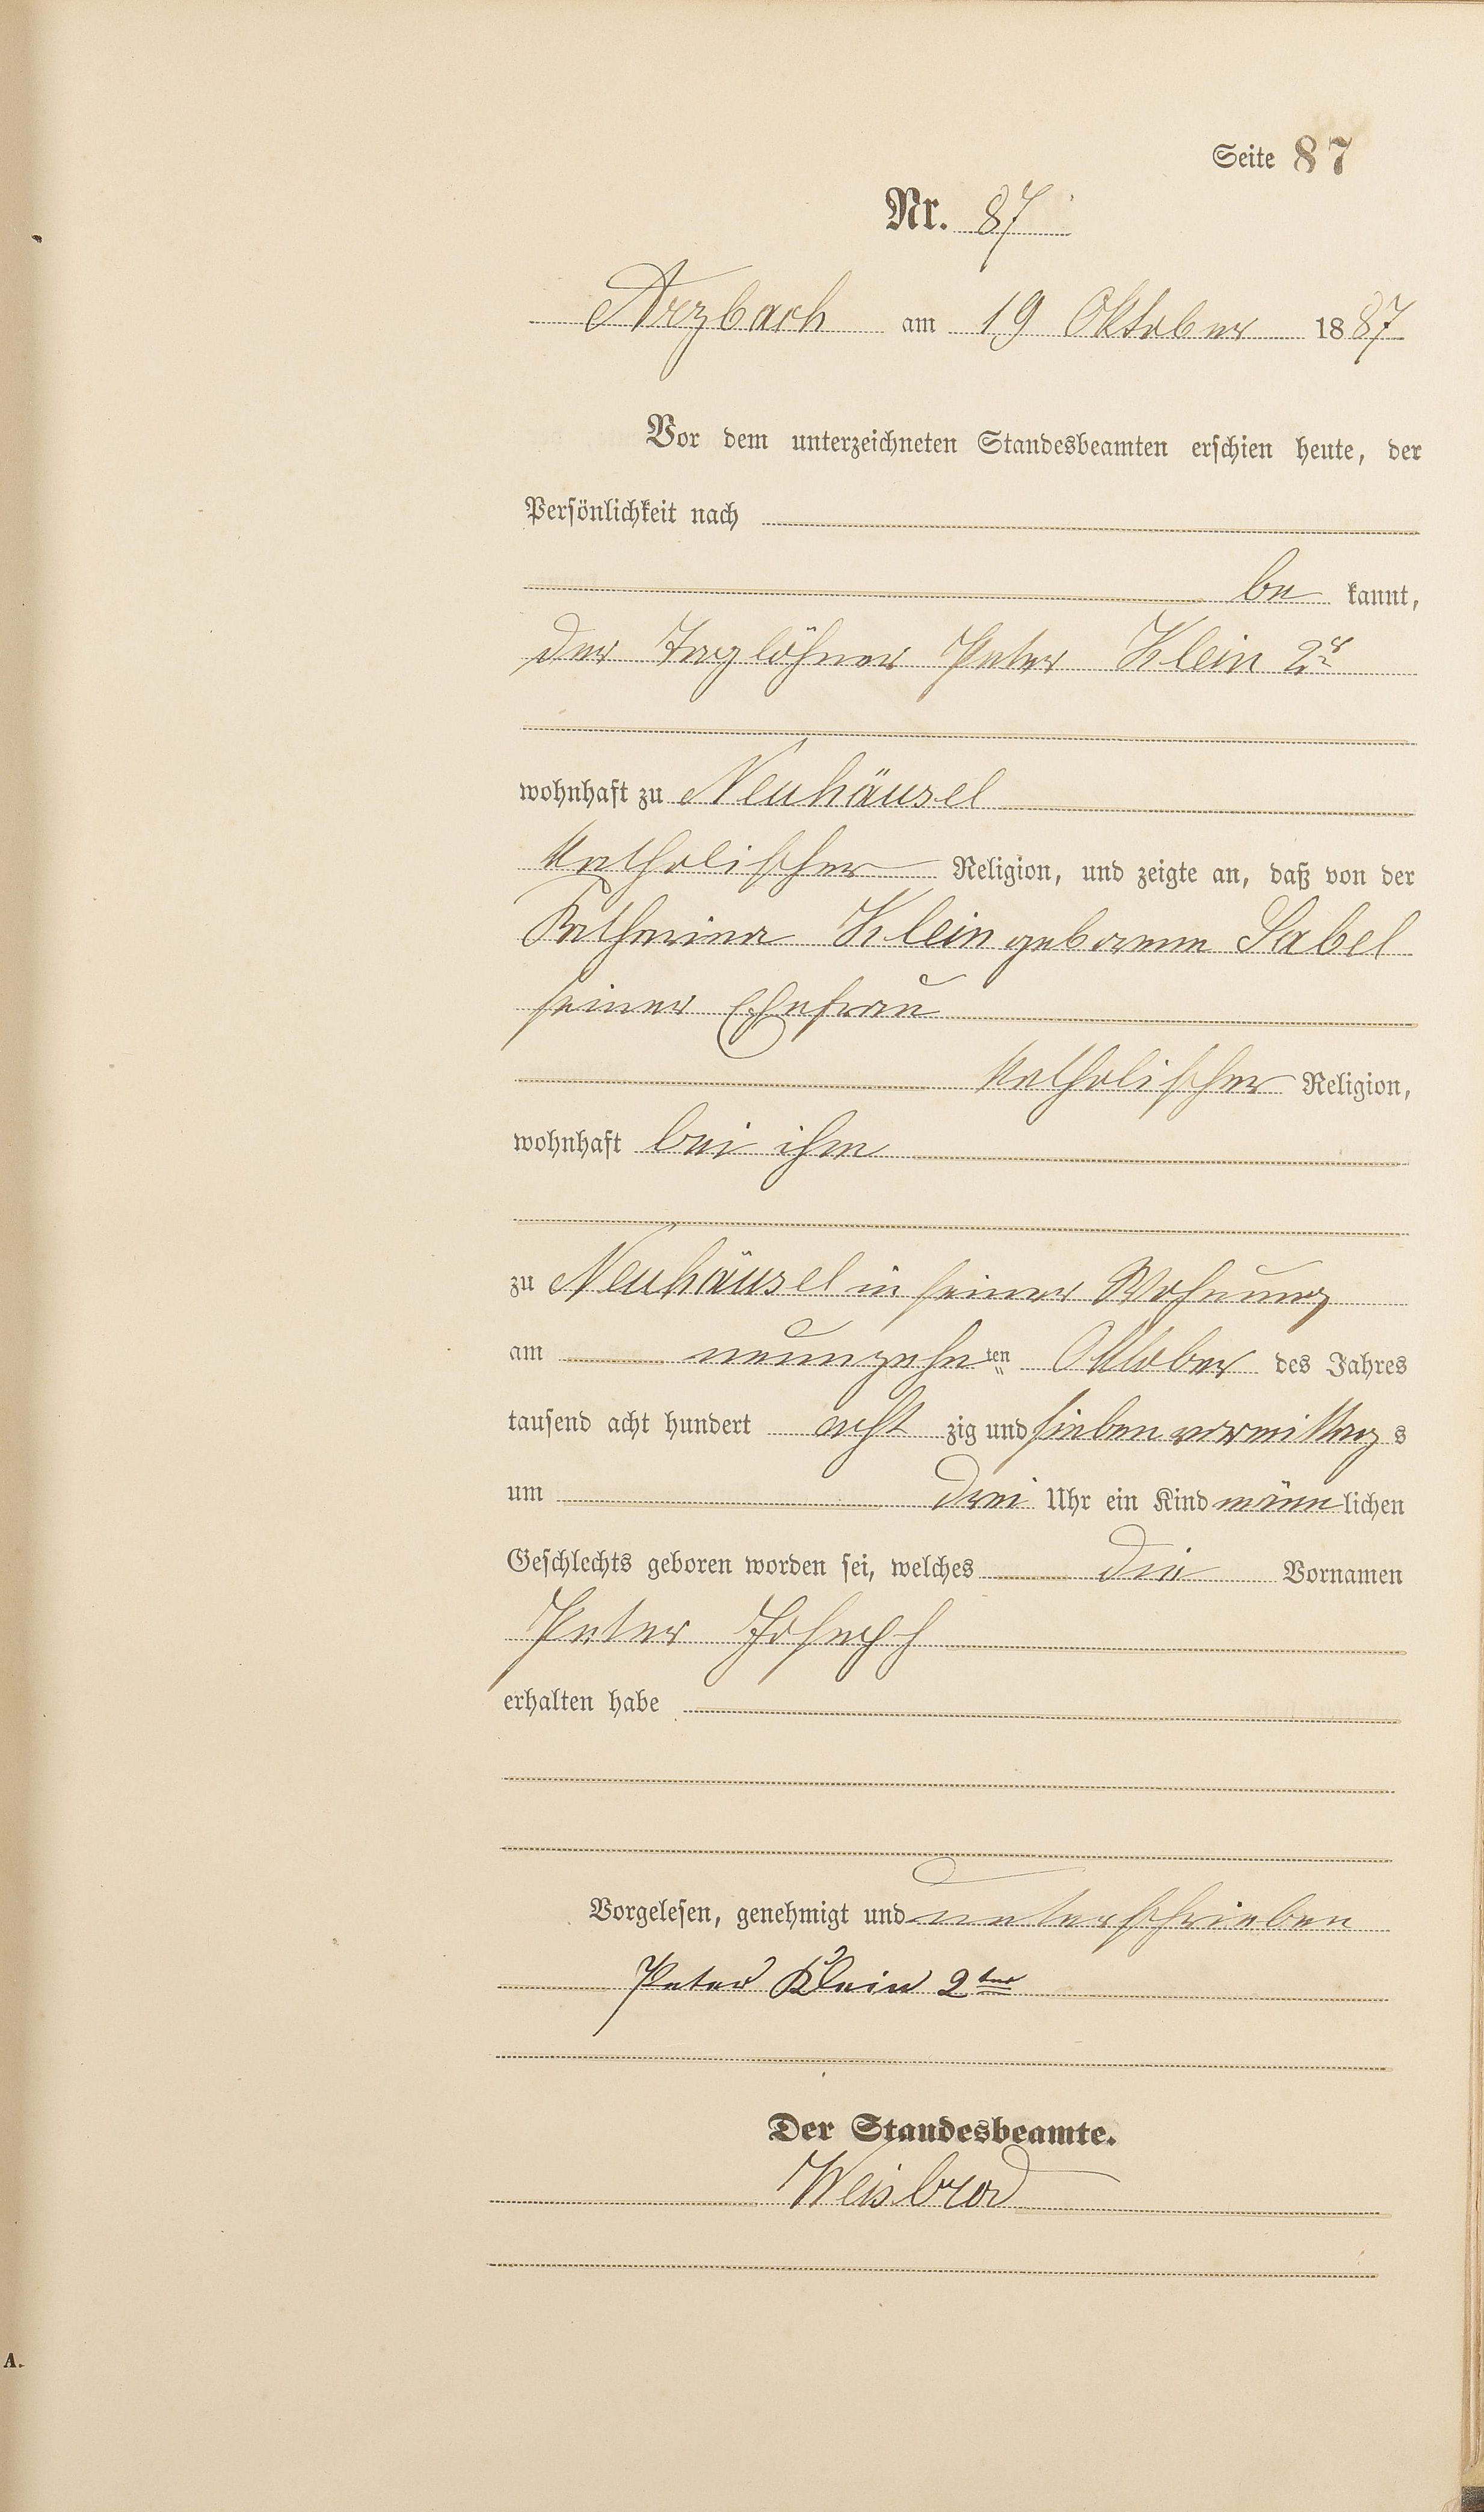 Seite 87
Nr. 87
Arzbach am 19 Oktober 1887
Vor dem unterzeichneten Standesbeamten erschien heute, der
Persönlichkeit nach
be kannt,
der Taglöhner Peter Klein 2r
wohnhaft zu Neuhäusel
katholischer Religion, und zeigte an, daß von der
Katharina Klein geborene Sabel
seiner Ehefrau
katholischer Religion,
wohnhaft bei ihm
zu Neuhäusel in seiner Wohnung
am neunzehnten Oktober des Jahres
tausend acht hundert acht zig und sieben vormittags
um drei Uhr ein Kind männlichen
Geschlechts geboren worden sei, welches die Vornamen
Peter Joseph
erhalten habe
Vorgelesen, genehmigt und unterschrieben
Peter Klein 2ter
Der Standesbeamte.
Weisbrod
A.